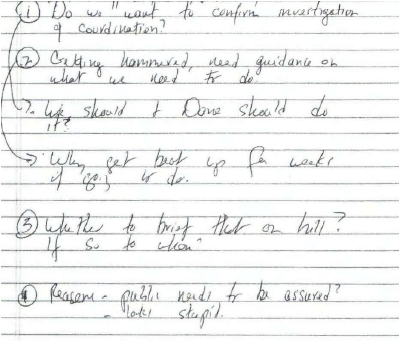 ① Do we "want to confirm investigation
of coordination?
② Getting hammered, need guidance on
what we need to do.
We should & Dana should do
it?
Why get beat up for weeks
if going to do.
③ Whether to brief that on hill?
If so to whom?
④ Reasons - public needs to be assured?
- looks stupid.